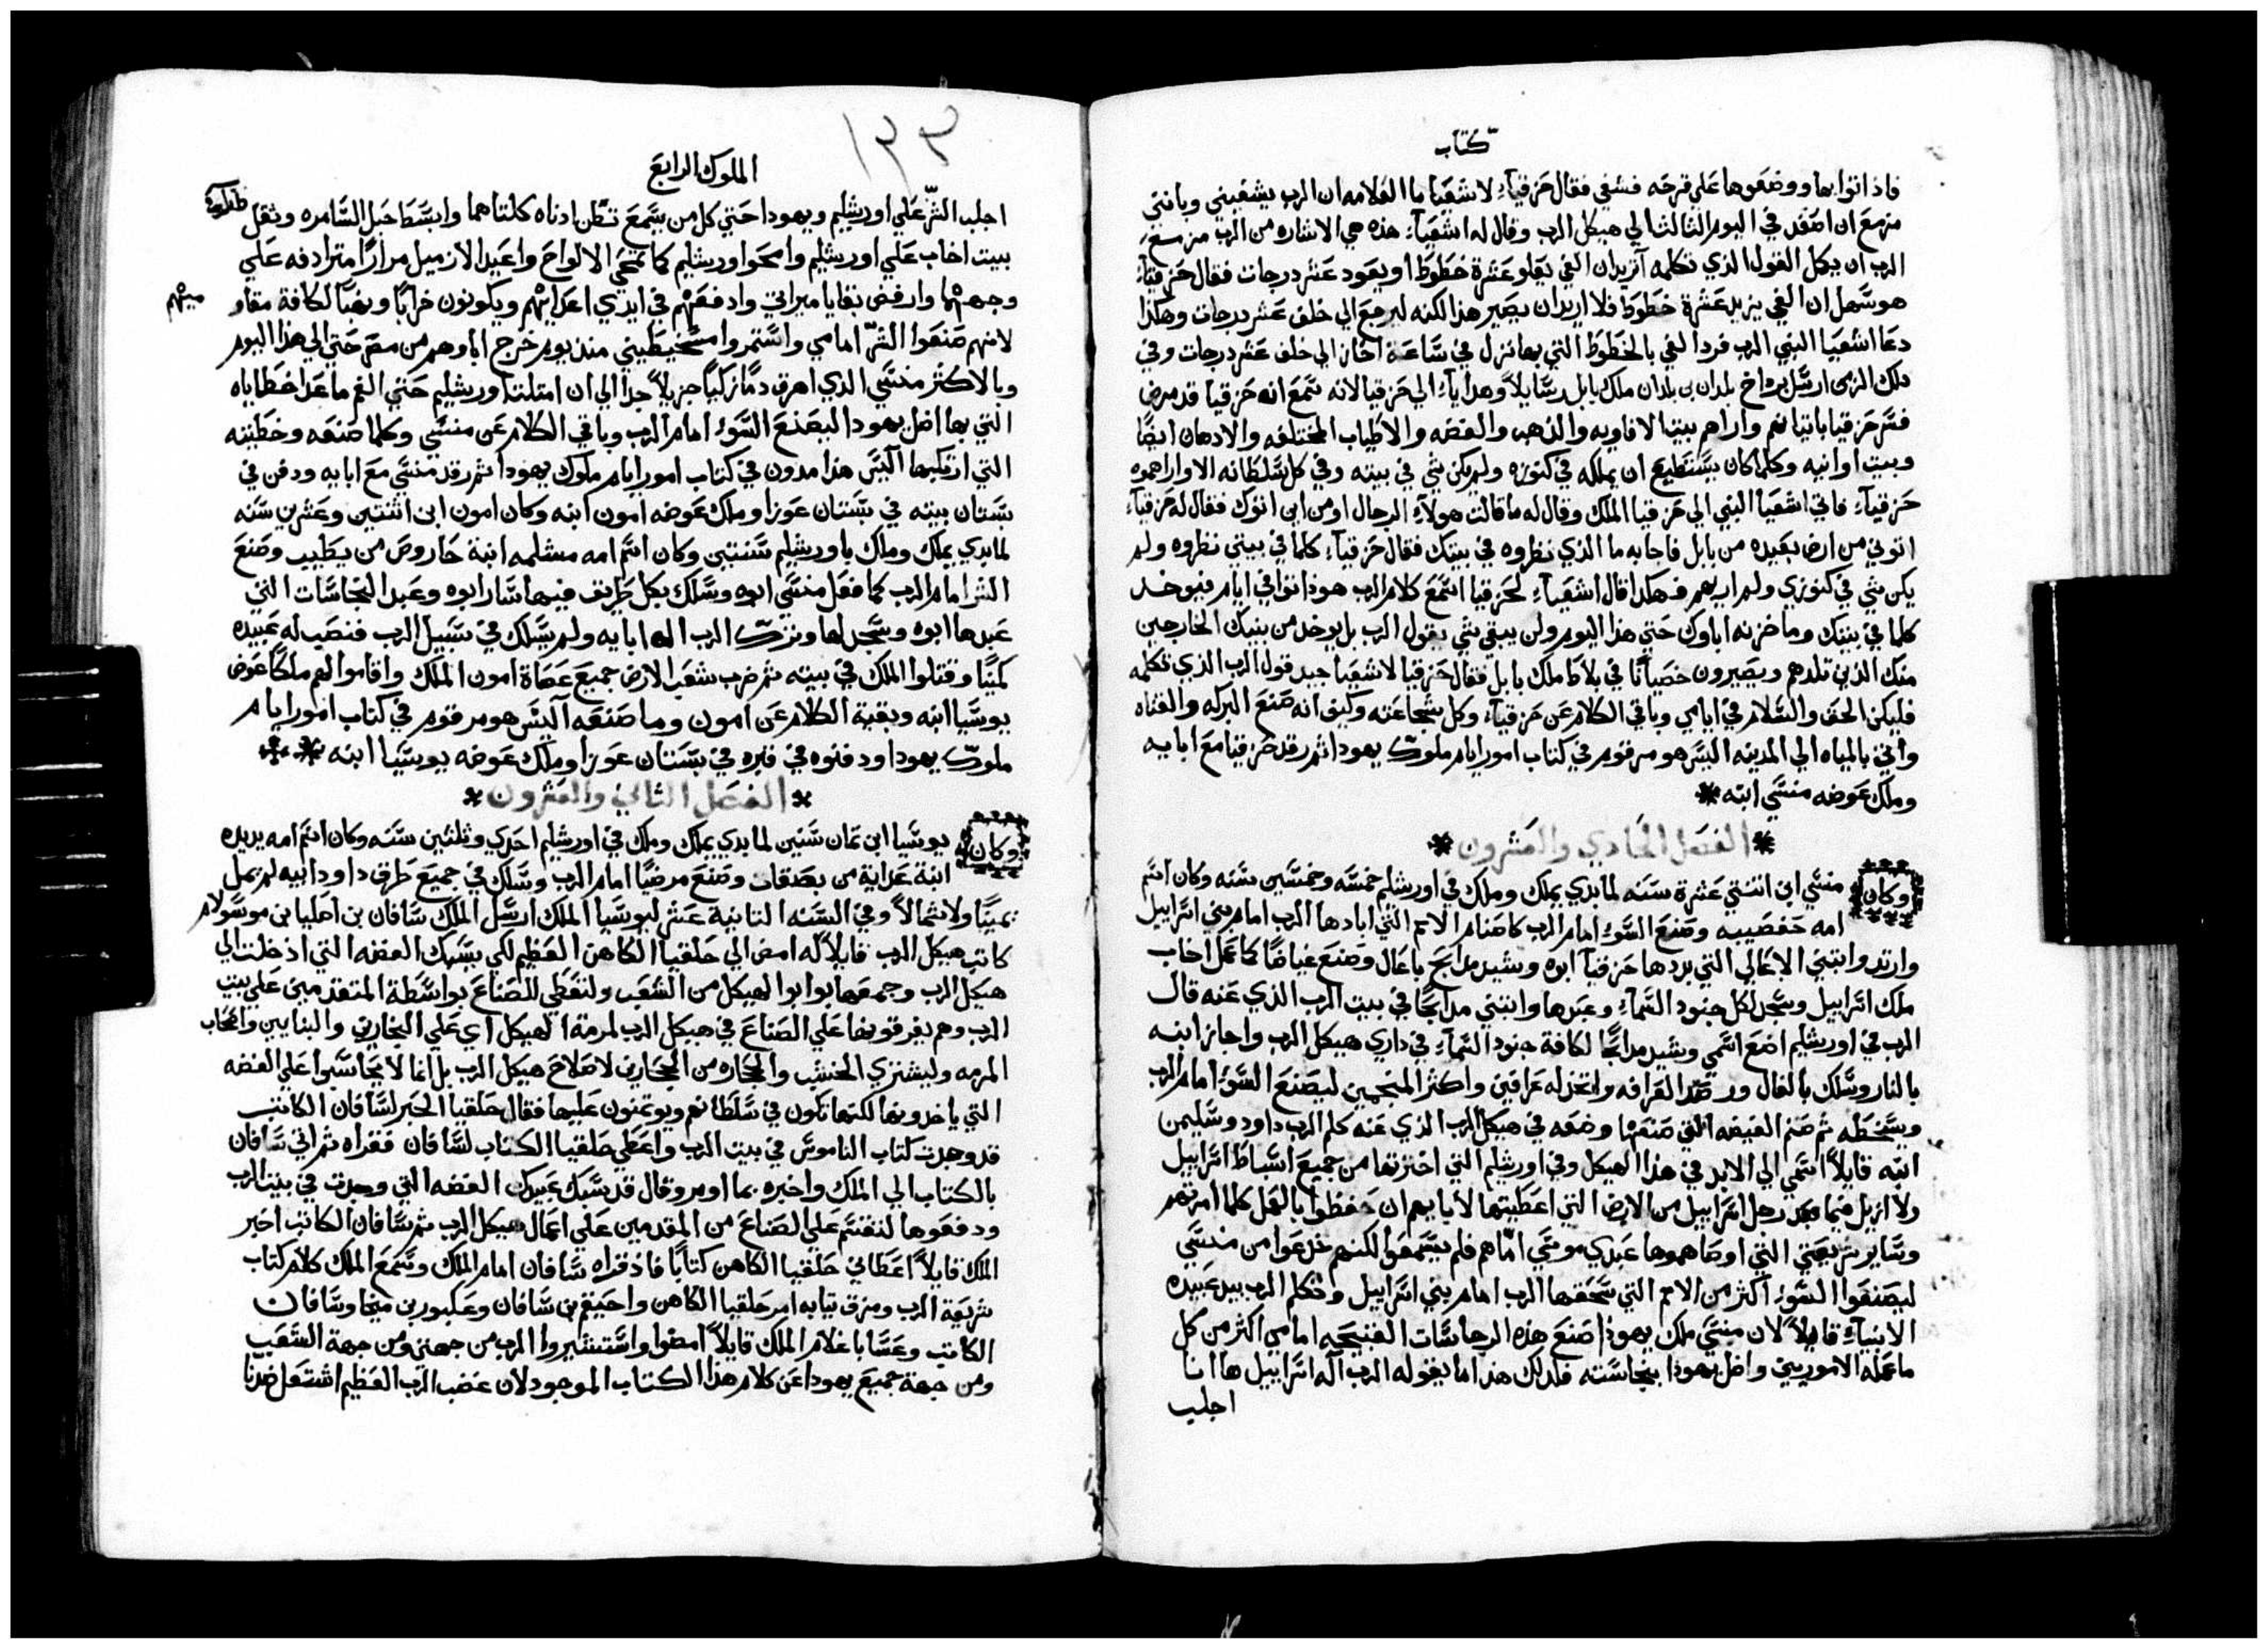 كتاب
فاذ اتوا بها ووضعوها علي قرحه فشفي فقال حزقياء لاشعيا ما العلامه ان الرب يشفيني وبانني
مزمع ان اصعد في اليوم الثالث الي هيكل الرب وقال له اشعياء هذه هي الاشاره من الرب مزمع
الرب ان يكمل القول الذي تكلمه آتريد ان الفي يعلو عشرة خطوط او يعود عشر درجات فقال حزقياء
هو سهل ان الفي يزيد عشرة خطوط فلا اريد ان يصير هذا لكنه ليرجع الي خلف عشر درجات وهكذا
دعا اشعيا النبي الرب فرد الفي بالخطوط التي بها نزل في ساعة آحاز الي خلف عشر درجات وفي
ذلك الزمن ارسل برداخ بلدان بن بلدان ملك بابل رسايلاً وهدايآء الي حزقيا لانه سمع انه حزقيا قد مرض
فسر حزقيا باتيانهم واراهم بيت الافاويه والذهب والفضه والاطياب المختلفه والادهان ايضًا
وبيت اوانيه وكلما كان يستطيع ان يملكه في كنوزه ولم يكن شي في بيته وفي كل سلطانه الا واراهموه
حزقياء فاتي اشعيا النبي الي حزقيا الملك وقال له ما قالت هولآء الرجال او من اين اتوك فقال له حزقياء
اتوني من ارض بعيده من بابل فاجابه ما الذي نظروه في بيتك فقال حزقياء كلما في بيتي نظروه ولم
يكن شي في كنوزي ولم اريهم فهكذا قال اشعياء لحزقيا اسمع كلام الرب هوذا توافي ايام فيوخذ
كلما في بيتك وما خزنه اباوك حتي هذا اليوم ولن يبقي شي يقول الرب بل يوخذ من بنيك الخارجين
منك الذين تلدهم ويصيرون خصيانًا في بلاط ملك بابل فقال حزقيا لاشعيا جيد قول الرب الذي تكلمه
فليكن الحق والسلام في ايامي وباقي الكلام عن حزقياء وكل شجاعته وكيف انه صنع البركه والقناه
واتي بالمياه الي المدينه اليس هو مرقوم في كتاب امور ايام ملوك يهودا ثم رقد حزقيا مع ابايه
وملك عوضه منسي ابنه
الفصل الحادي والعشرون
وكان منسي ابن اثنتي عشرة سنه لما بدي يملك وملك في اورشليم خمسه وخمسين سنه وكان اسم
امه حفصيبه وصنع السوء امام الرب كاصنام الامم التي ابادها الرب امام بني اسراييل
وارتد وابتني الاعالي التي بددها حزقيآ ابوه وشيد مدابح باعال وصنع غياضًا كما عمل اخاب
ملك اسراييل وسجد لكل جنود السمآء وعبدها وابتني مدابحًا في بيت الرب الذي عنه قال
الرب في اورشليم اضع اسمي وشيد مدابحًا لكافة جنود السمآء في داري هيكل الرب واجاز ابنه
بالنار وسلك بالفال ورصد العرافه واتخذ له عرافين واكثر المنجمين ليصنع السوء امام الرب
ويسخطه ثم صنم الغيضه التي صنعها وضعه في هيكل الرب الذي عنه كلم الرب داود وسليمن
ابنه قايلاً اسمي الي الابد في هذا الهيكل وفي اورشليم التي اخترتها من جميع اسباط اسراييل
ولا ازيل فيما بعد رجل اسراييل من الارض التي اعطيتها لابايهم ان حفظوا بالعمل كلما امرتهم
وساير شريعتي التي اوصاهموها عبدي موسي امّاهم فلم يسمعوا لكنهم خدعوا من منسي
ليصنعوا السوء اكثر من الامم التي سحقها الرب امام بني اسراييل وتكلم الرب بيد عبيده
الانبيآء قايلاً لان منسي ملك يهوذا صنع هذه الرجاسات القبيحه امامي اكثر من كل
ما عمله الاموريين واضل يهوذا بنجاسته فلذلك هذا ما يقوله الرب آله اسراييل ها انا
اجلب
١٣٣
الملوك الرابع
اجلب الشرّ علي اورشليم ويهودا حتي كل من يسمع تطن ادناه كلتاهما وابسط حبل السامره وثقل
بيت اخاب علي اورشليم وامحوا اورشليم كما تمحي الالواح واعيد الازميل مرارًا مترادفه علي
وجهها وارفض بقايا ميراتي وادفعهم في ايدي اعدايهم ويكونون خرابًا ونهبًا لكافة مقاو
ميهم
لانهم صنعوا الشرّ امامي واستمروا مسخيطيني منذ يوم خرج اباوهم من مصر حتي الي هذا اليوم
وبالاكثر منسي الذي اهرق دمًا زكيًا جزيلاً جدًا الي ان امتلت اورشليم حتي الفم ما عدا خطاياه
التي بها اضل يهودا ليصنع السوء امام الرب وباقي الكلام عن منسي وكلما صنعه وخطيته
التي ارتكبها اليس هذا مدون في كتاب امور ايام ملوك يهودا ثم رقد منسي مع ابايه ودفن في
بستان بيته في بستان عوزا وملك عوضه امون ابنه وكان امون ابن اثنتين وعشرين سنه
لما بدي يملك وملك باورشليم سنتين وكان اسم امه مسلمه ابنة حاروص من يطيب وصنع
الشر امام الرب كما فعل منسي ابوه وسلك بكل طريق فيها سار ابوه وعبد النجاسات التي
عبدها ابوه وسجد لها وترك الرب اله ابايه ولم يسلك في سبيل الرب فنصب له عبيده
كمينًا وقتلوا الملك في بيته ثم ضرب شعب الارض جميع عصاة امون الملك واقاموا لهم ملكًا عوض
يوسيا ابنه وبقية الكلام عن امون وما صنعه اليس هو مرقوم في كتاب امور ايام
ملوك يهودا ودفنوه في قبره في بستان عوزا وملك عوضه يوسيا ابنه
الفصل الثاني والعشرون
وكان يوسيا ابن تمان سنين لما بدي يملك وملك في اورشليم احدي وثلثين سنه وكان اسم امه يديده
ابنة عداية من بصقات وصنع مرضيًا امام الرب وسلك في جميع طرق داود ابيه لم يمل
يمينًا ولا شمالاً وفي السنه الثانية عشر ليوسيا الملك ارسل الملك سافان بن اصليا بن موسولام
كاتب هيكل الرب قايلاً له امض الي حلقيا الكاهن العظيم لكي يسبك الفضه التي ادخلت الي
هيكل الرب وجمعها بوابوا الهيكل من الشعب ولتعطي للصناع بواسطة المتقدمين علي بيت
الرب وهم يفرقونها علي الصناع في هيكل الرب لمرمة الهيكل اي علي النجارين والبنايين واصحاب
المرمه وليشتري الخشب والحجاره من الحجارين لاصلاح هيكل الرب بل انما لا يحاسبوا علي الفضه
التي ياخذونها لكنها تكون في سلطانهم ويوتمنون عليها فقال حلقيا الحبر لسافان الكاتب
قد وجدت كتاب الناموس في بيت الرب واعطي حلقيا الكتاب لسافان فقراه ثم اتي سافان
بالكتاب الي الملك واخبره بما اومر وقال قد سبك عبيدك الفضه التي وجدت في بيت الرب
ودفعوها لتقسم علي الصناع من المقدمين علي اعمال هيكل الرب ثم سافان الكاتب اخبر
الملك قايلاً اعطاني حلقيا الكاهن كتابًا فاذ قراه سافان امام الملك وسمع الملك كلام كتاب
شريعة الرب ومزق ثيابه امر حلقيا الكاهن واحيقم بن سافان وعكبور بن ميخا وسافان
الكاتب وعسايا غلام الملك قايلاً امضوا واستشيروا الرب من جهتي ومن جهة الشعب
ومن جهة جميع يهودا عن كلام هذا الكتاب الموجود لان غضب الرب العظيم اشتعل ضدنا